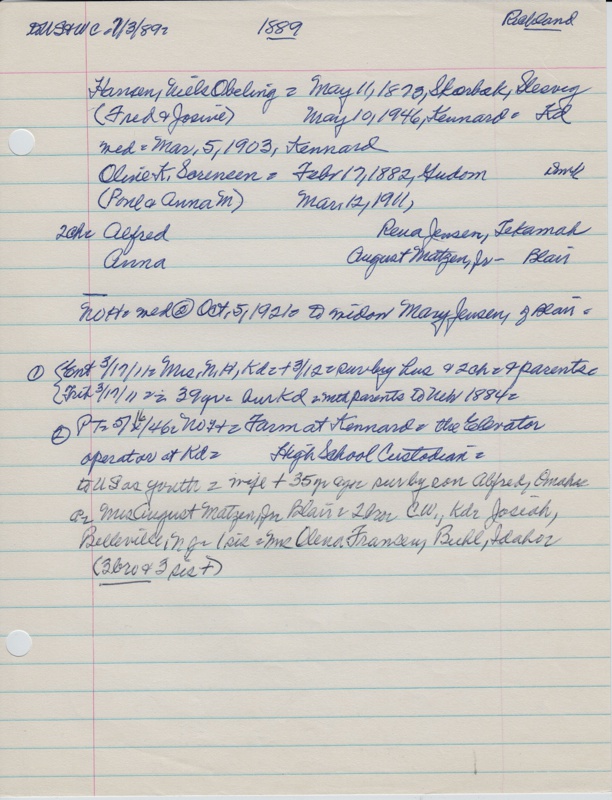 1889
Hansen, Niels Obeling = May 11, 1873, Skorbak, Slesvig
(Fred & Josine) May 10, 1946, Kennard = Kd
med = Mar. 5, 1903, Kennard
Oline K. Sorensen = Feb 17, 1882, Gudom Dmk
(Poul & Anna M) Mar. 12, 1911,
2ch = Alfred Rena Jensen, Tekamah
Anna August Matzen, Jr - Blair
NOH = med ② Oct. 5, 1921 = to widow Mary Jensen, of Blair =
① Ent 3/17/11 = Mrs. N.H, Kd = + 3/12 = sur by hus & 2ch = & parents =
3/17/11 = 29 yr = our Kd = parents to Neb 1884 =
② PT = 5/16/46 = NOH = Farm at Kennard = the Elevator
operator at Kd = High School Custodian =
to US as youth = wife + 35 yr ago = sur by son Alfred, Omaha
Mrs August Matzen, Jr. Blair = 2bro = C.W., Kd = Josiah,
Belleville, 1 sis = Mrs Olena Fransen, Buhl, Idaho =
(3bro & 3 sis +)